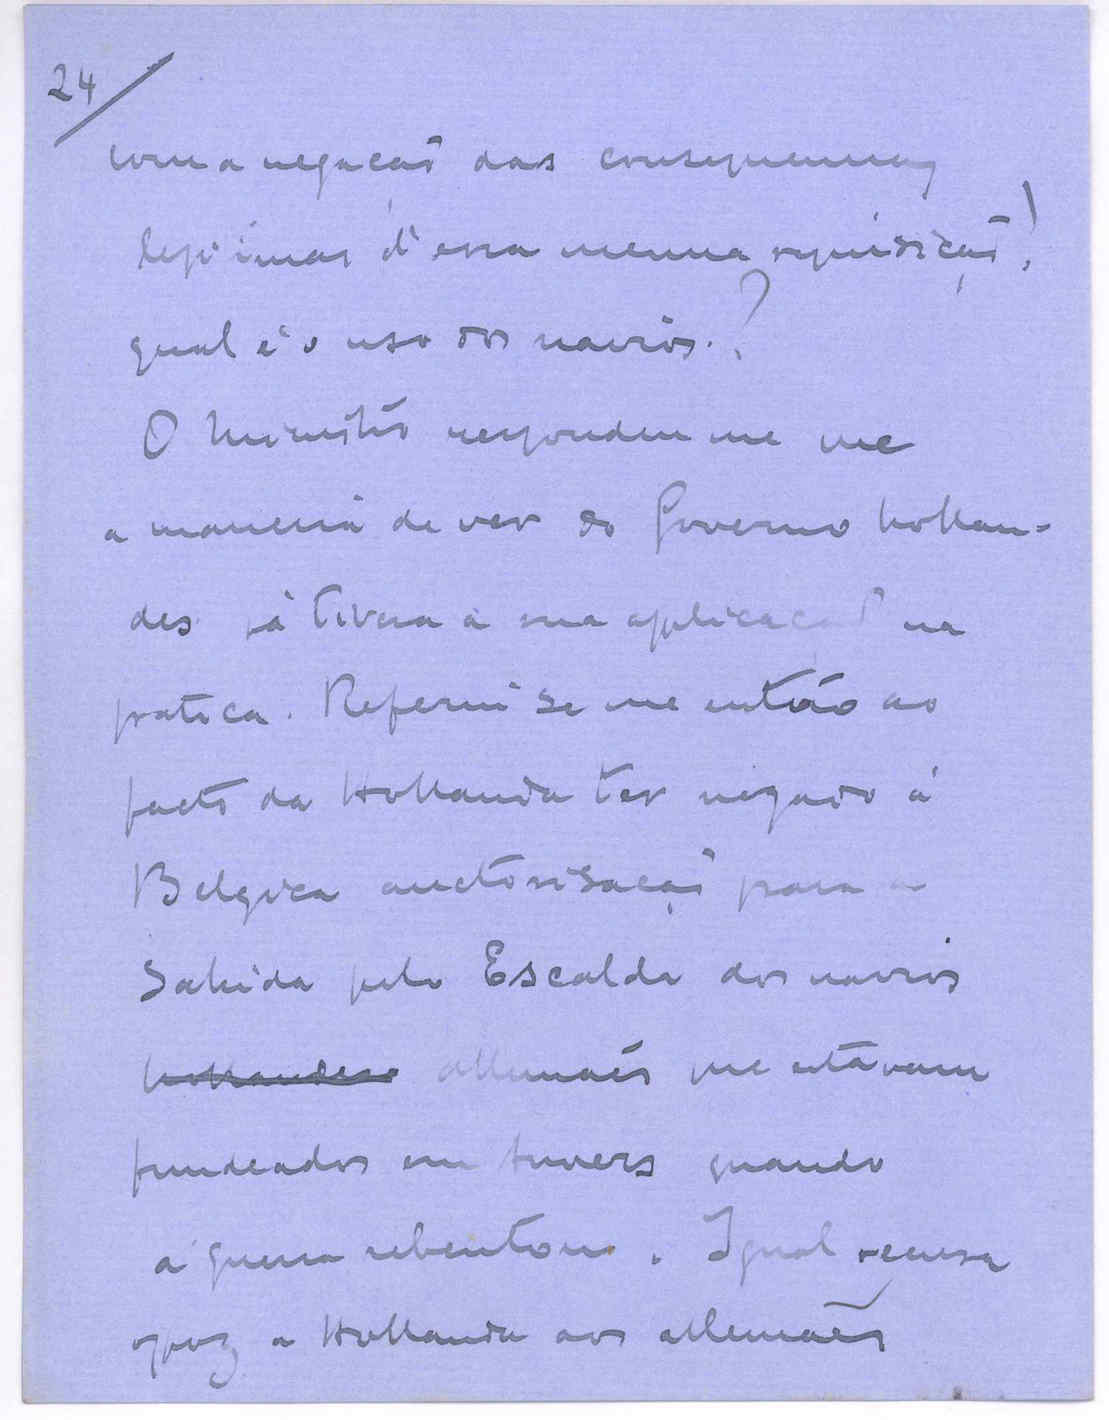 24/
com a negação das consequencias
legitimas d'essa mesma requisição!
qual é o uso dos navios?
O Ministro respondeu me que
a maneira de ver do Governo hollan-
dês já tivera a sua applicação na
pratica. Referiu se me então ao
facto da Hollanda ter negado á
Belgica auctorisação para a
Sahida pelo Escalda dos navios
hollandeses allemães que estavam
fundeados em Anvers quando
a guerra rebentou. Igual recusa
opoz a Hollanda aos allemães